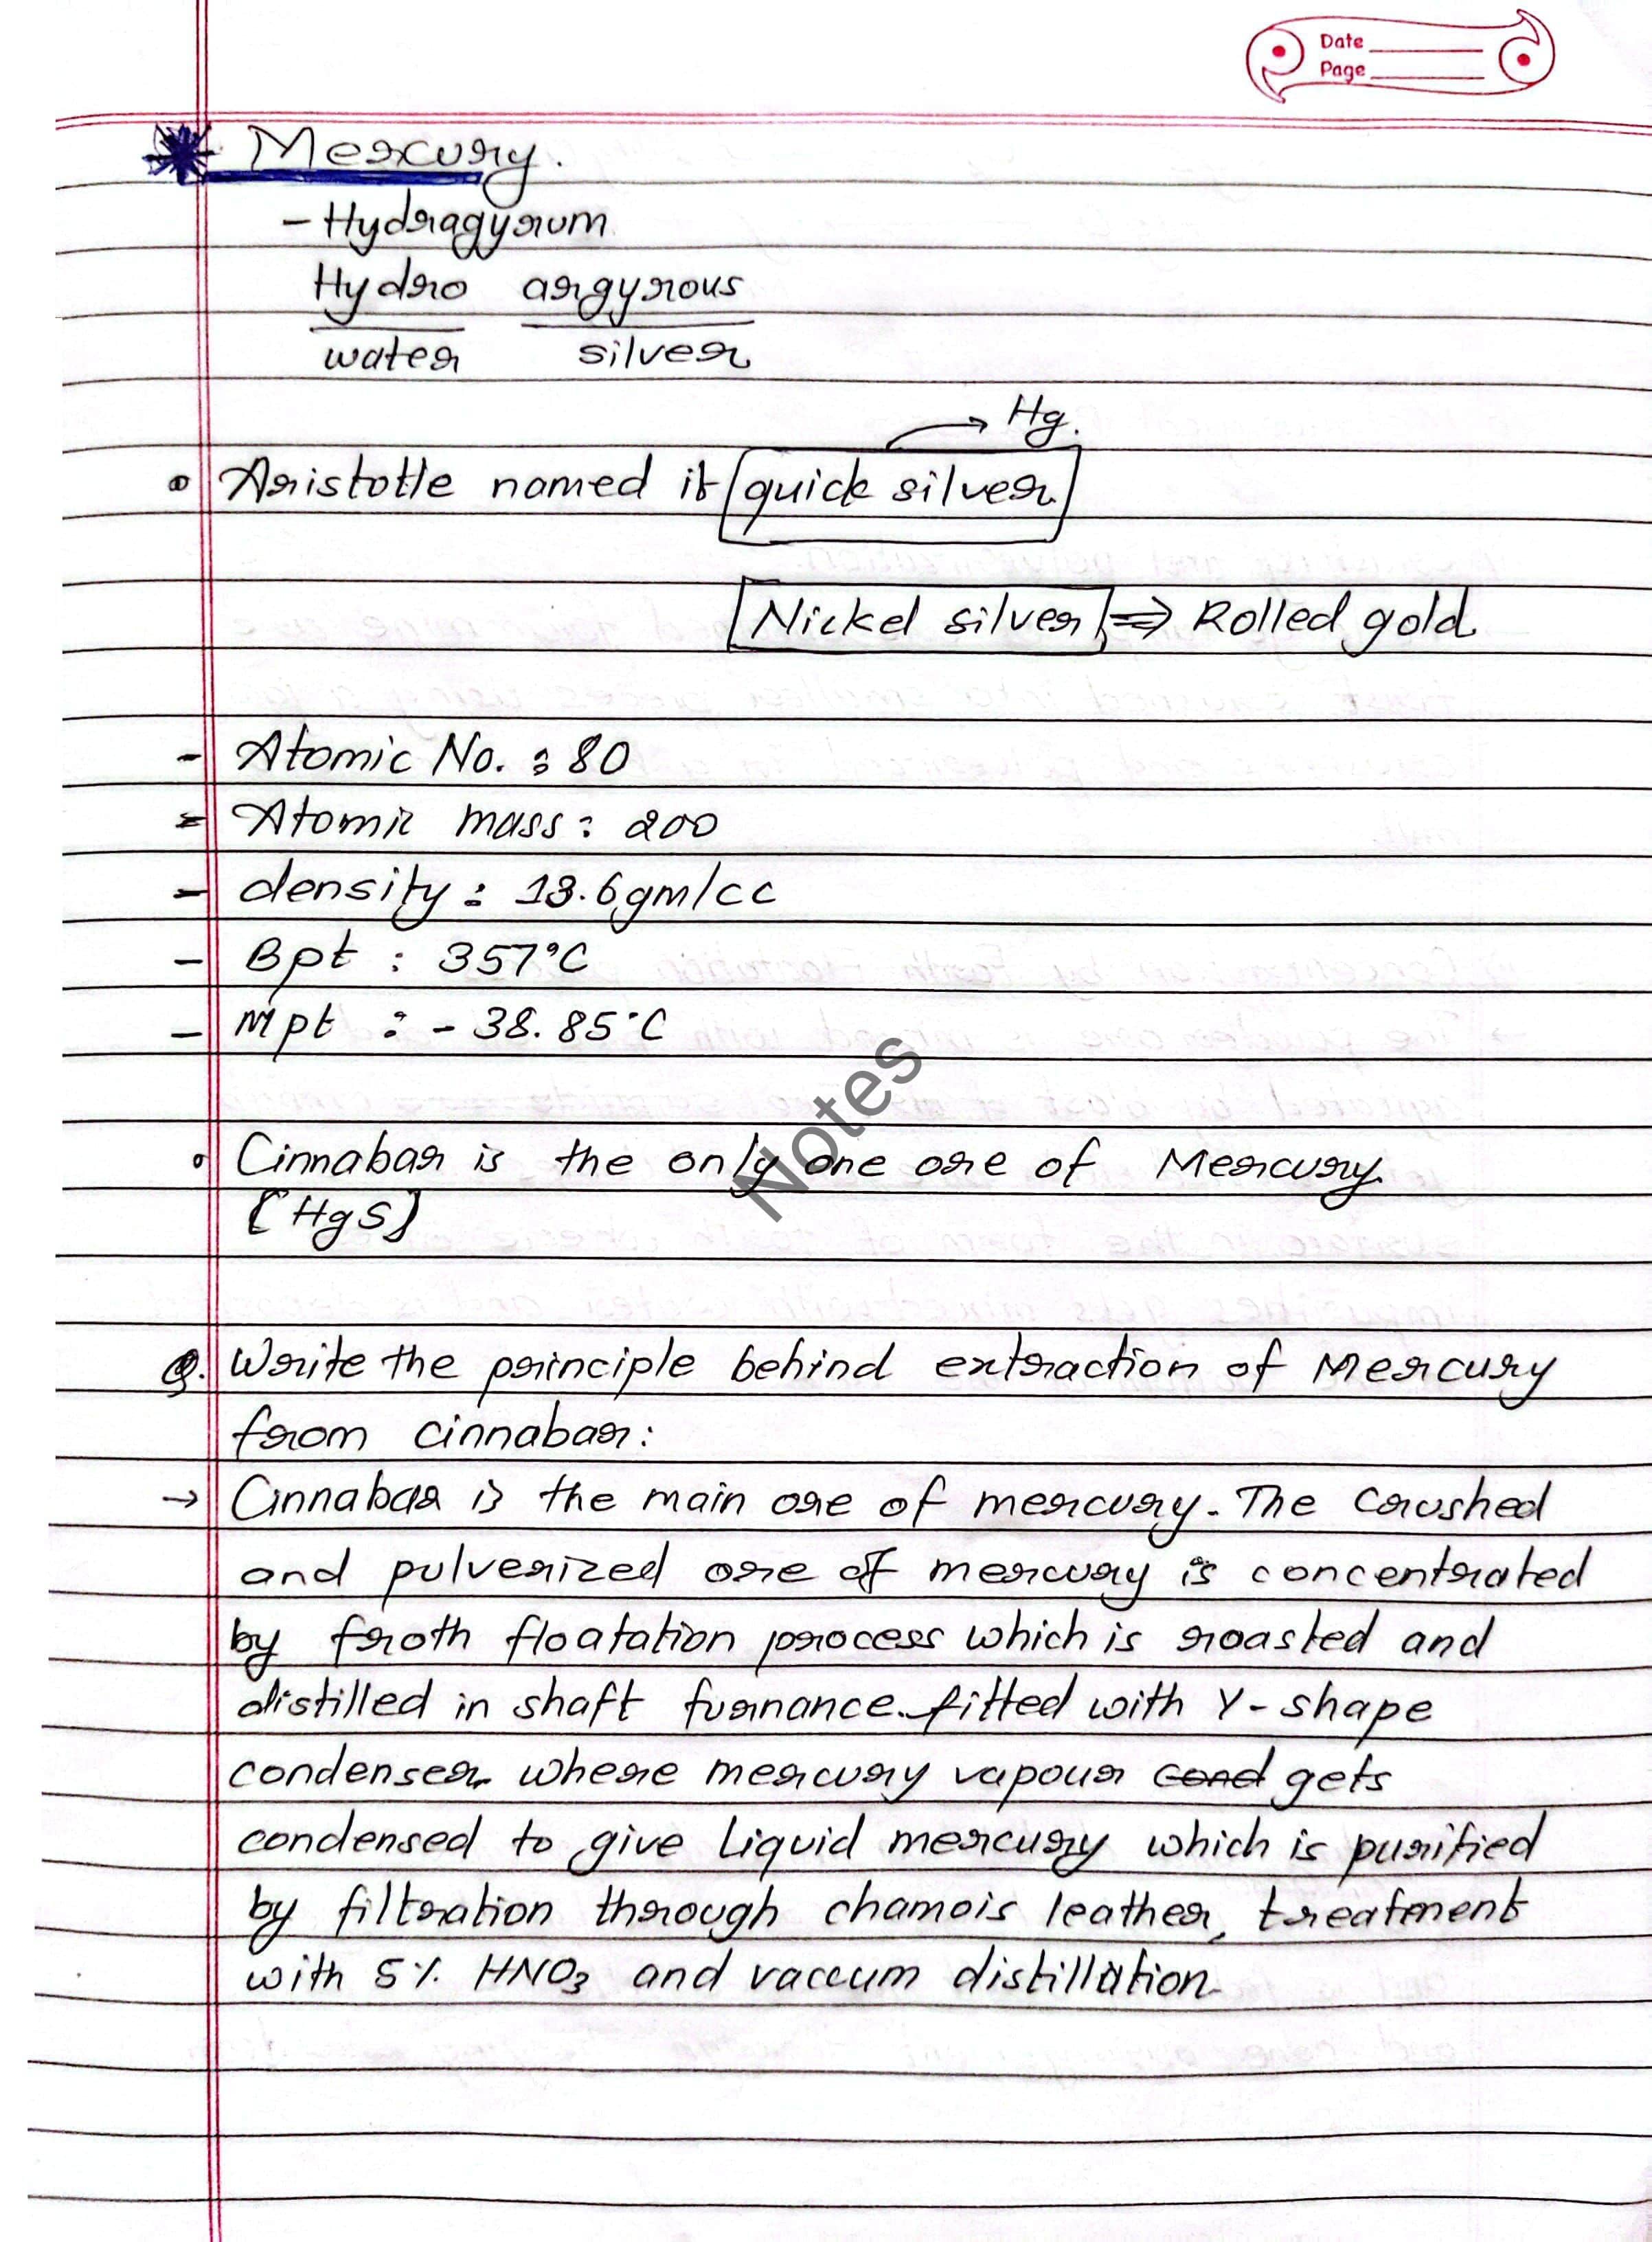 Date
Page
Mercury.
- Hydragyrum
Hydro argyrous
water silver
Hg.
Aristotle named it quick silver
Nickel silver ⇒ Rolled gold
- Atomic No. : 80
- Atomic mass : 200
- density : 13.6gm/cc
- Bpt : 357°C
- Mpt : - 38.85°C
Notes
Cinnabar is the only one ore of Mercury.
[HgS]
Q. Write the principle behind extraction of Mercury
from cinnabar:
→ Cinnabar is the main ore of mercury. The crushed
and pulverized ore of mercury is concentrated
by froth floatation process which is roasted and
distilled in shaft furnance. fitted with Y-shape
condenser where mercury vapour cond gets
condensed to give liquid mercury which is purified
by filtration through chamois leather, treatment
with 5% HNO3 and vaccum distillation.